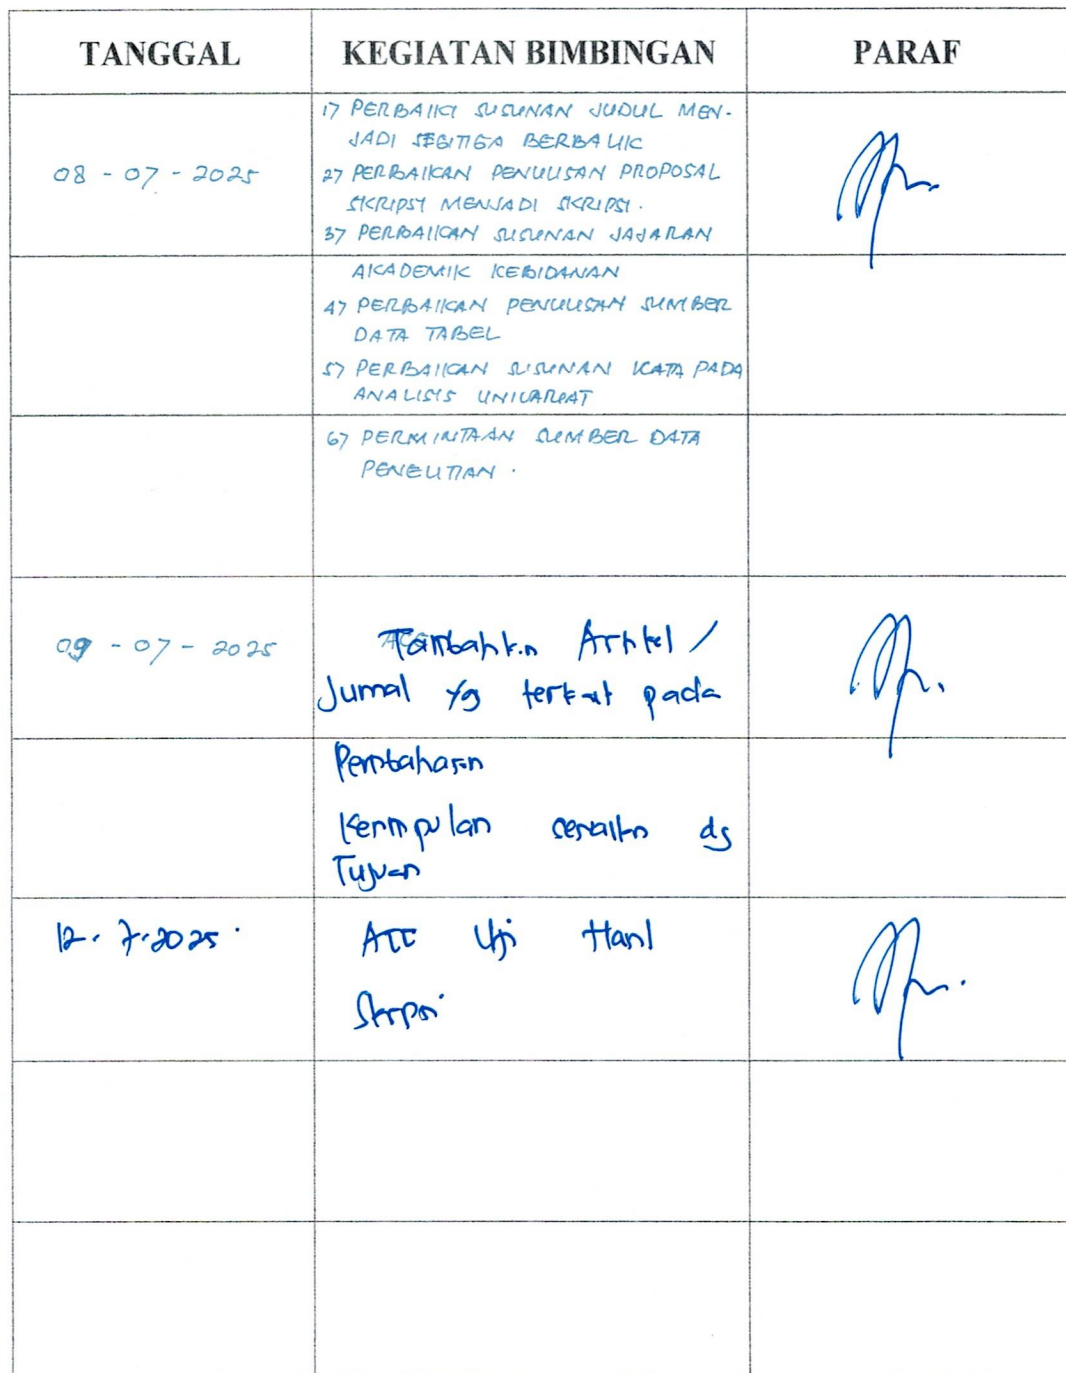 TANGGAL KEGIATAN BIMBINGAN PARAF
08 - 07 - 2025
1) PERBAIKI SUSUNAN JUDUL MEN-
JADI SEGITIGA BERBALIK
2) PERBAIKAN PENULISAN PROPOSAL
SKRIPSI MENJADI SKRIPSI.
3) PERBAIKAN SUSUNAN JAJARAN
AKADEMIK KEBIDANAN
4) PERBAIKAN PENULISAN SUMBER
DATA TABEL
5) PERBAIKAN SUSUNAN KATA PADA
ANALISIS UNIVARIAT
6) PERMINTAAN SUMBER DATA
PENELITIAN.
09 - 07 - 2025
Tambahkn Artikel /
Jurnal yg terkait pada
Pembahasan
Kesimpulan sesuaikn dg
Tujuan
12. 7. 2025.
ACC Uji Hasil
Skripsi